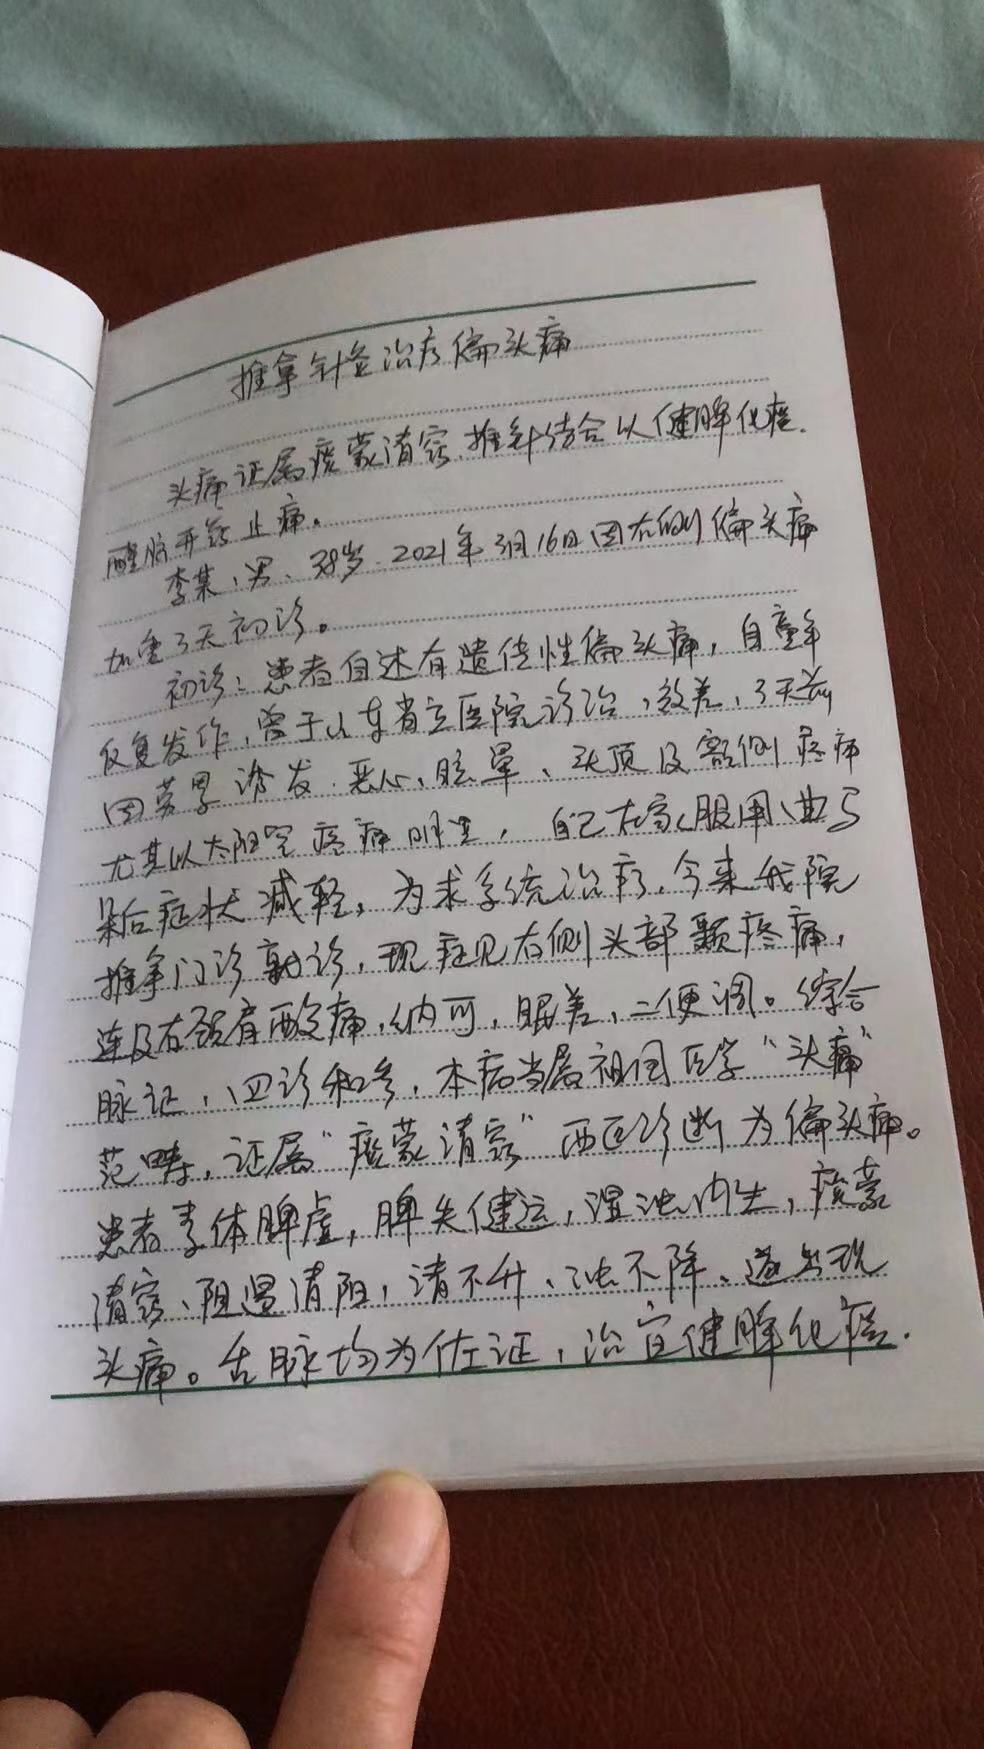 推拿针灸治疗偏头痛
头痛证属痰蒙清窍、推针结合以健脾化痰.
醒脑开窍止痛。
李某、男、38岁.2021年3月16日因右侧偏头痛
加重3天初诊。
初诊：患者自述有遗传性偏头痛，自童年
反复发作，曾于山东省立医院诊治，效差，3天前
因劳累诱发.恶心、眩晕、头顶及额侧疼痛
尤其以太阳穴疼痛明显，自己在家服用
后症状减轻，为求系统治疗，今来我院
推拿门诊就诊，现症见右侧头部颞疼痛，
连及右颈肩酸痛，纳可，眠差，二便调。综合
脉证，四诊和参，本病当属祖国医学“头痛”
范畴，证属“痰蒙清窍”西医诊断为偏头痛。
患者素体脾虚，脾失健运，湿浊内生，痰蒙
清窍、阻遏清阳，清不升、浊不降、遂出现
头痛。舌脉均为佐证，治宜健脾化痰.